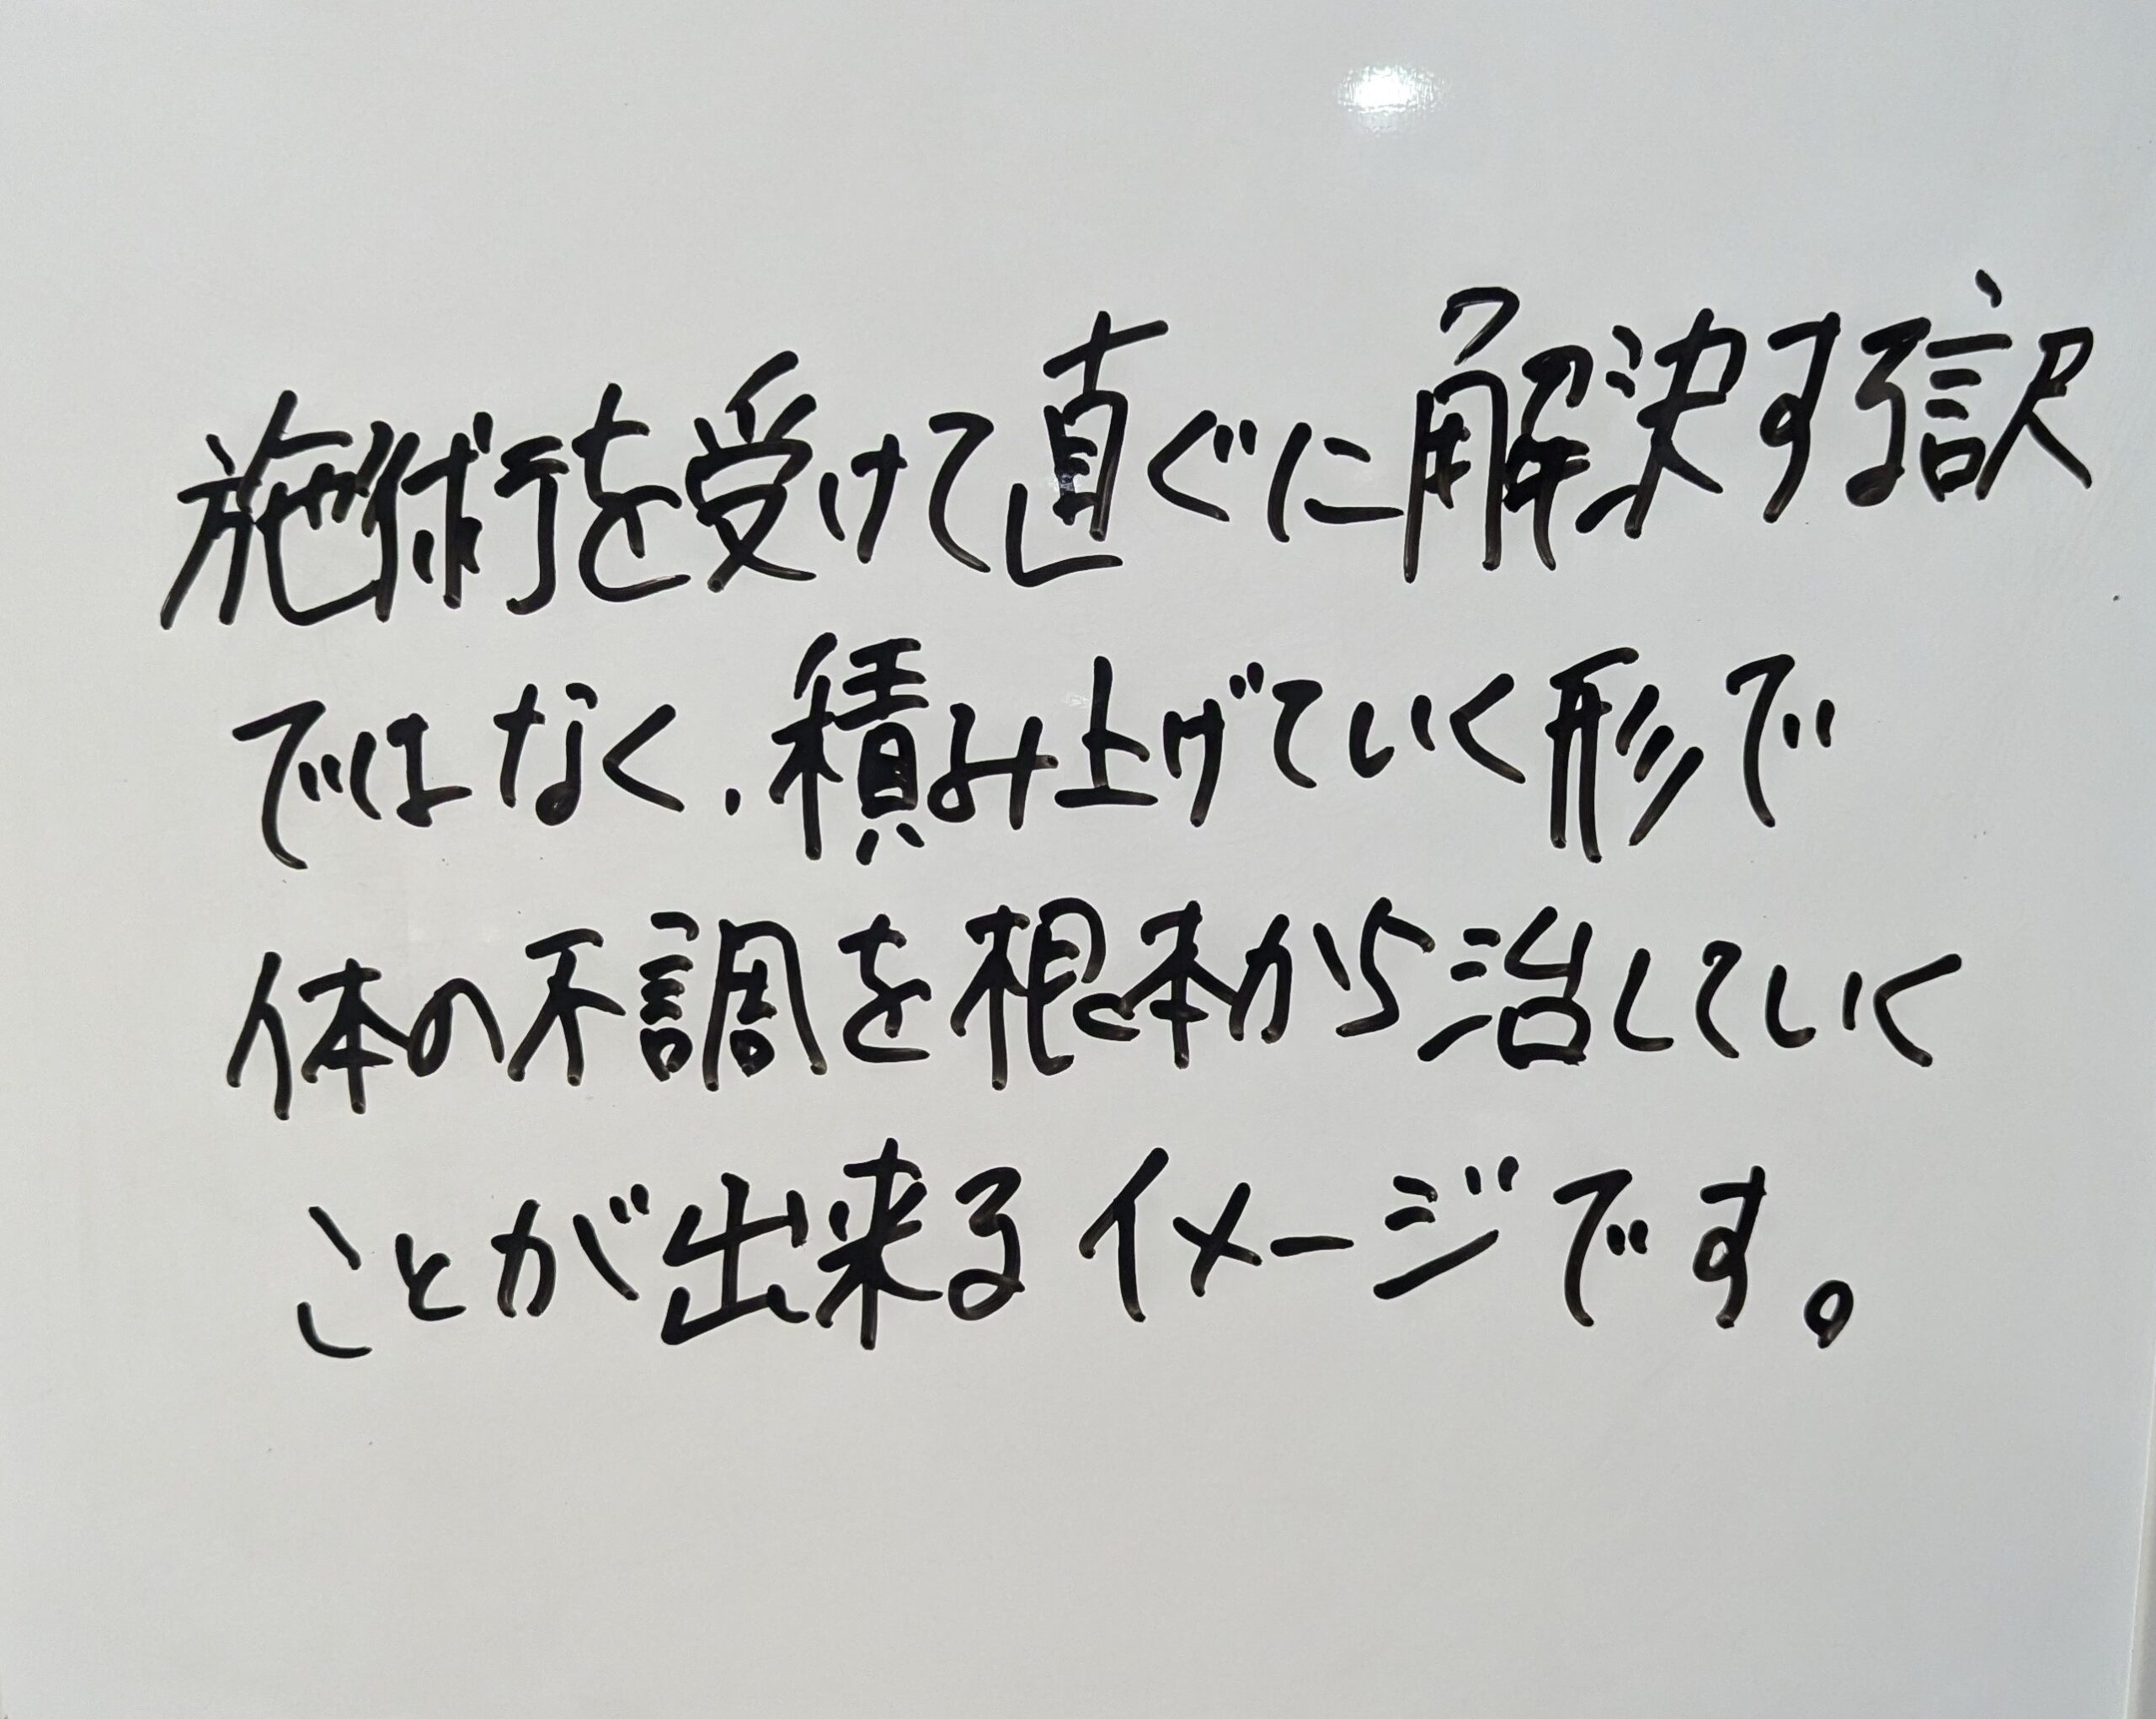 施術を受けて直ぐに解決する訳
ではなく、積み上げていく形で
体の不調を根本から治していく
ことが出来るイメージです。